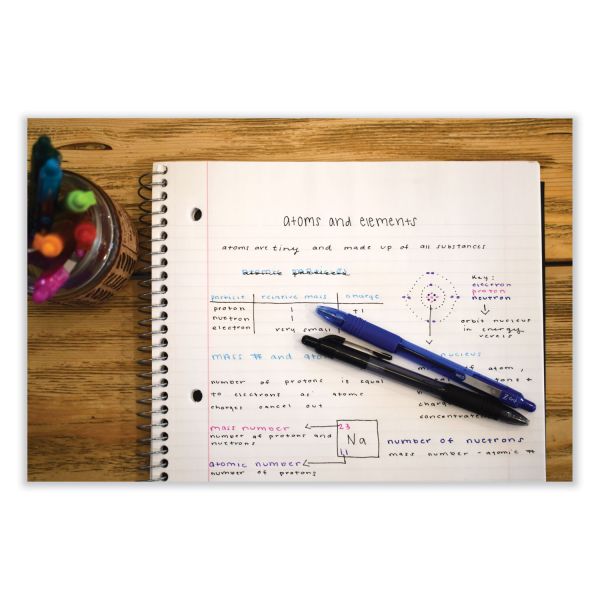 atoms and elements
atoms are tiny and made up of all substances
particle relative mass charge
proton 1 +1
nuetron 1
electron very small
Key:
electron
proton
neutron
orbit nucleus
in energy
MASS # and
nucleus
number of protons is equal
to electrons as atoms
charges cancel out
of atom,
+
concentrate
mass number
number of protons and
nuetrons
23
Na
11
atomic number
number of protons
number of nuetrons
mass number - atomic #